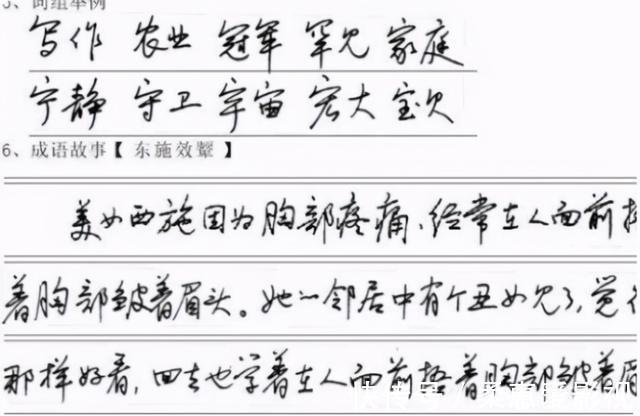 5、词组举例
写作 农业 冠军 罕见 家庭
宁静 守卫 宇宙 宏大 宝贝
6、成语故事【 东施效颦 】
美女西施因为胸部疼痛,经常在人面前
着胸部皱着眉头。她的邻居中有个丑女见了,觉
那样好看,回去也学着在人面前捂着胸部皱着眉